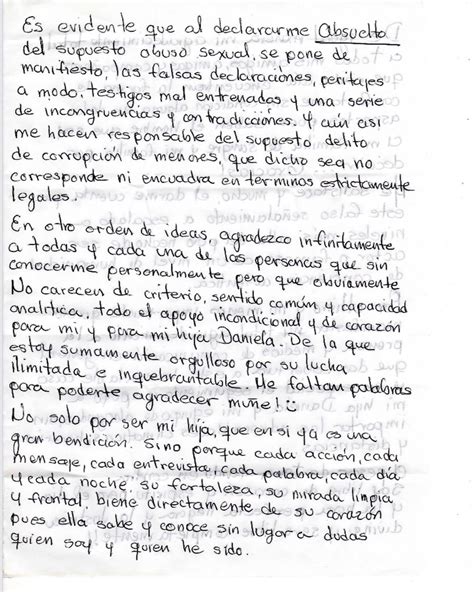 Es evidente que al declararme Absuelto
del supuesto abuso sexual, se pone de
manifiesto, las falsas declaraciones, peritajes
a modo, testigos mal entrenados y una serie
de incongruencias y contradicciones. Y aún así
me hacen responsable del supuesto delito
de corrupción de menores, que dicho sea no
corresponde ni encuadra en términos estrictamente
legales.
En otro orden de ideas, agradezco infinitamente
a todas y cada una de las personas que sin
conocerme personalmente pero que obviamente
No carecen de criterio, sentido común y capacidad
analítica, todo el apoyo incondicional y de corazón
para mi y para mi hija Daniela. De la que
estoy sumamente orgulloso por su lucha
ilimitada e inquebrantable. Me faltan palabras
para poderte agradecer muñe! :)
No solo por ser mi hija, que en si ya es una
gran bendición. Sino porque cada acción, cada
mensaje, cada entrevista, cada palabra, cada día
y cada noche su fortaleza, su mirada limpia
y frontal, biene directamente de su corazón
pues ella sabe y conoce sin lugar a dudas
quien soy y quien he sido.